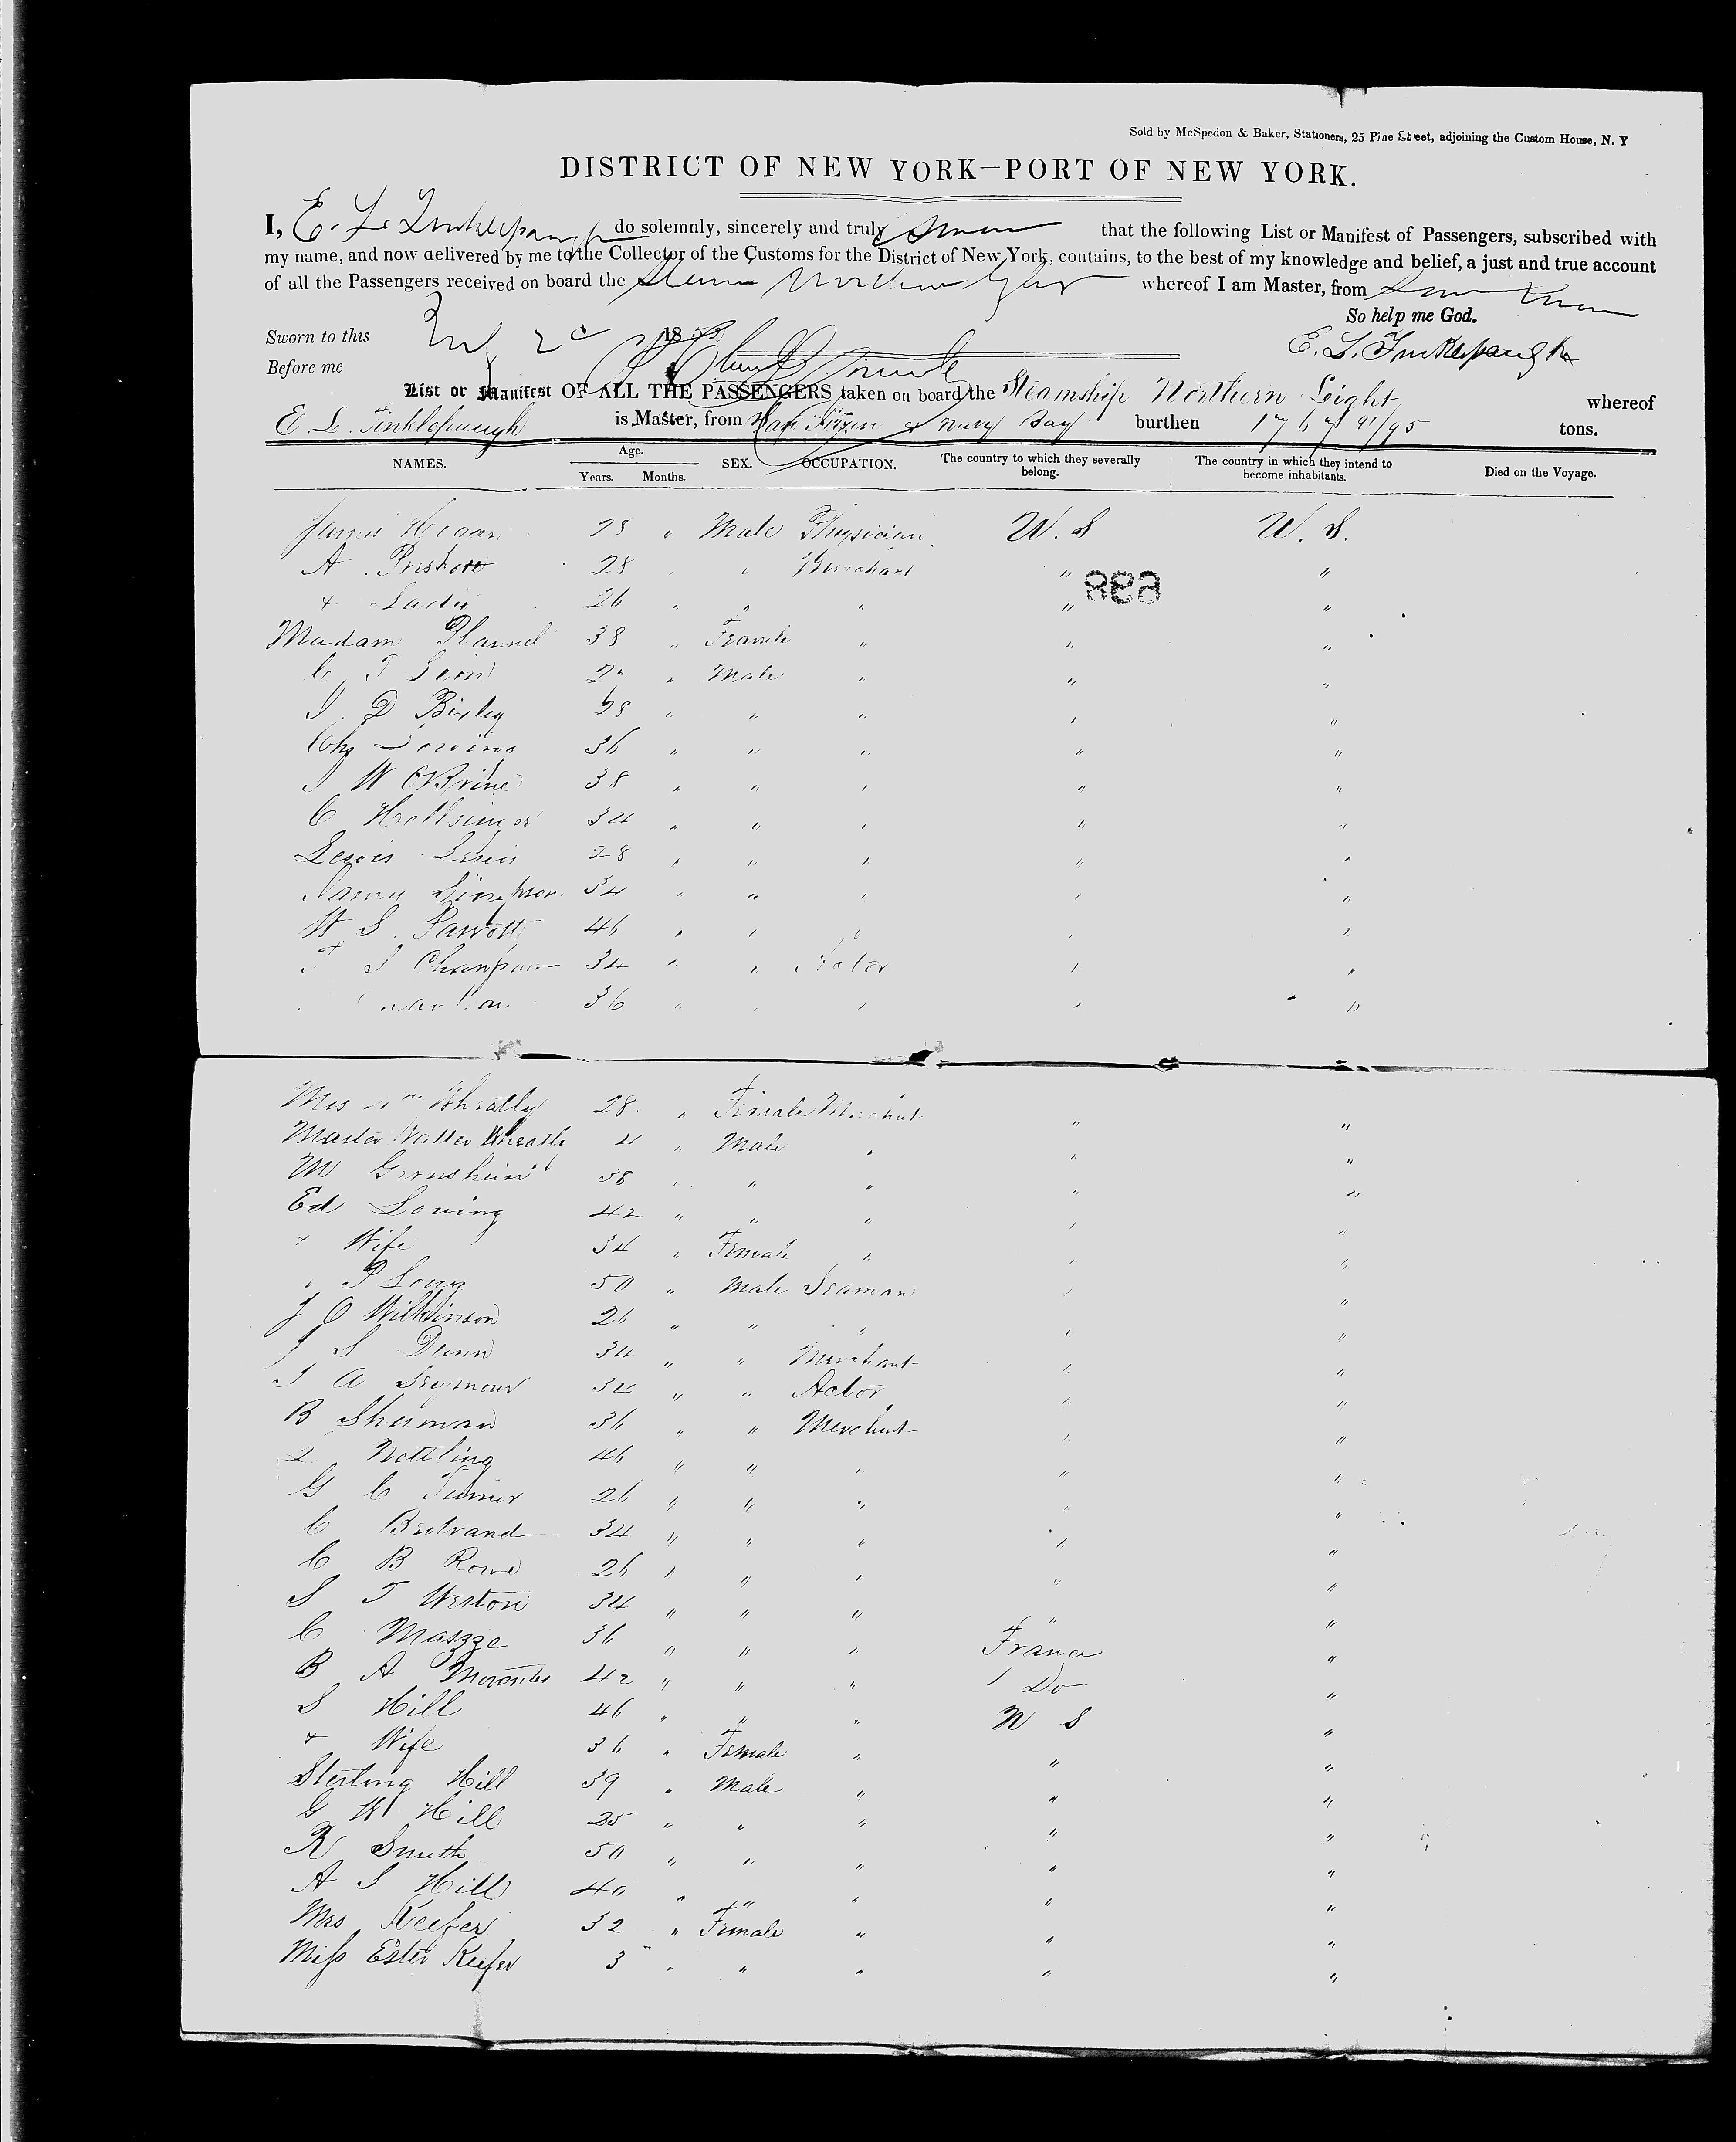 Sold by McSpedon & Baker, Stationers, 25 Pine Street, adjoining the Custom House, N. Y
DISTRICT OF NEW YORK—PORT OF NEW YORK.
I, E. L. Tinklepaugh do solemnly, sincerely and truly swear that the following List or Manifest of Passengers, subscribed with
my name, and now delivered by me to the Collector of the Customs for the District of New York, contains, to the best of my knowledge and belief, a just and true account
of all the Passengers received on board the Steamer Northern Light whereof I am Master, from San Juan
So help me God.
Sworn to this 18
E. L. Tinklepaugh
Before me
List or Manifest OF ALL THE PASSENGERS taken on board the Steamship Northern Light whereof
E. L. Tinklepaugh is Master, from & Navy Bay burthen 1767 91/95 tons.
NAMES. Age. Years. Months. SEX. OCCUPATION. The country to which they severally belong. The country in which they intend to become inhabitants. Died on the Voyage.
James 28 " Male Physician U. S U. S.
A. 28 " " Merchant " "
898
& Lady 26 " " " " "
Madam 38 " Female " " "
Male " " "
D Bixley 28 " " " " "
Chs 36 " " " " "
W OBrine 38 " " " " "
C 34 " " " " "
Lewis Lewis 28 " " " " "
Simpson 34 " " " " "
W S. Parrott 46 " " " " "
34 " " " "
36 " " " " "
Mrs Wm Wheatly 28 " Female Merchant " "
Master Walter Wheatly 4 " Male " " "
M 38 " " " " "
Ed Loving 42 " " " " "
& Wife 34 " Female " " "
P Long 50 " Male Seaman " "
J O Wilkinson 26 " " " " "
J S Dunn 34 " " Merchant " "
J A Seymour 34 " " Actor " "
B Sherman 36 " " Merchant " "
Nettling 46 " " " " "
G C Turner 26 " " " " "
C Bertrand 34 " " " " "
C B Rowe 26 " " " " "
S T Weston 34 " " " " "
C Mazze 36 " " " France "
B A 42 " " " Do "
S Hill 46 " " " U S "
& Wife 36 " Female " " "
Sterling Hill 39 " Male " " "
G W Hill 25 " " " " "
R Smith 50 " " " " "
A S Hill 40 " " " " "
Mrs Keefer 32 " Female " " "
Miss Ester Keefer 3 " " " " "